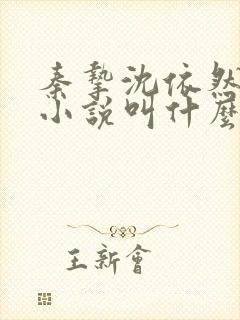 秦摯沈依然
小說叫什麼
王新會